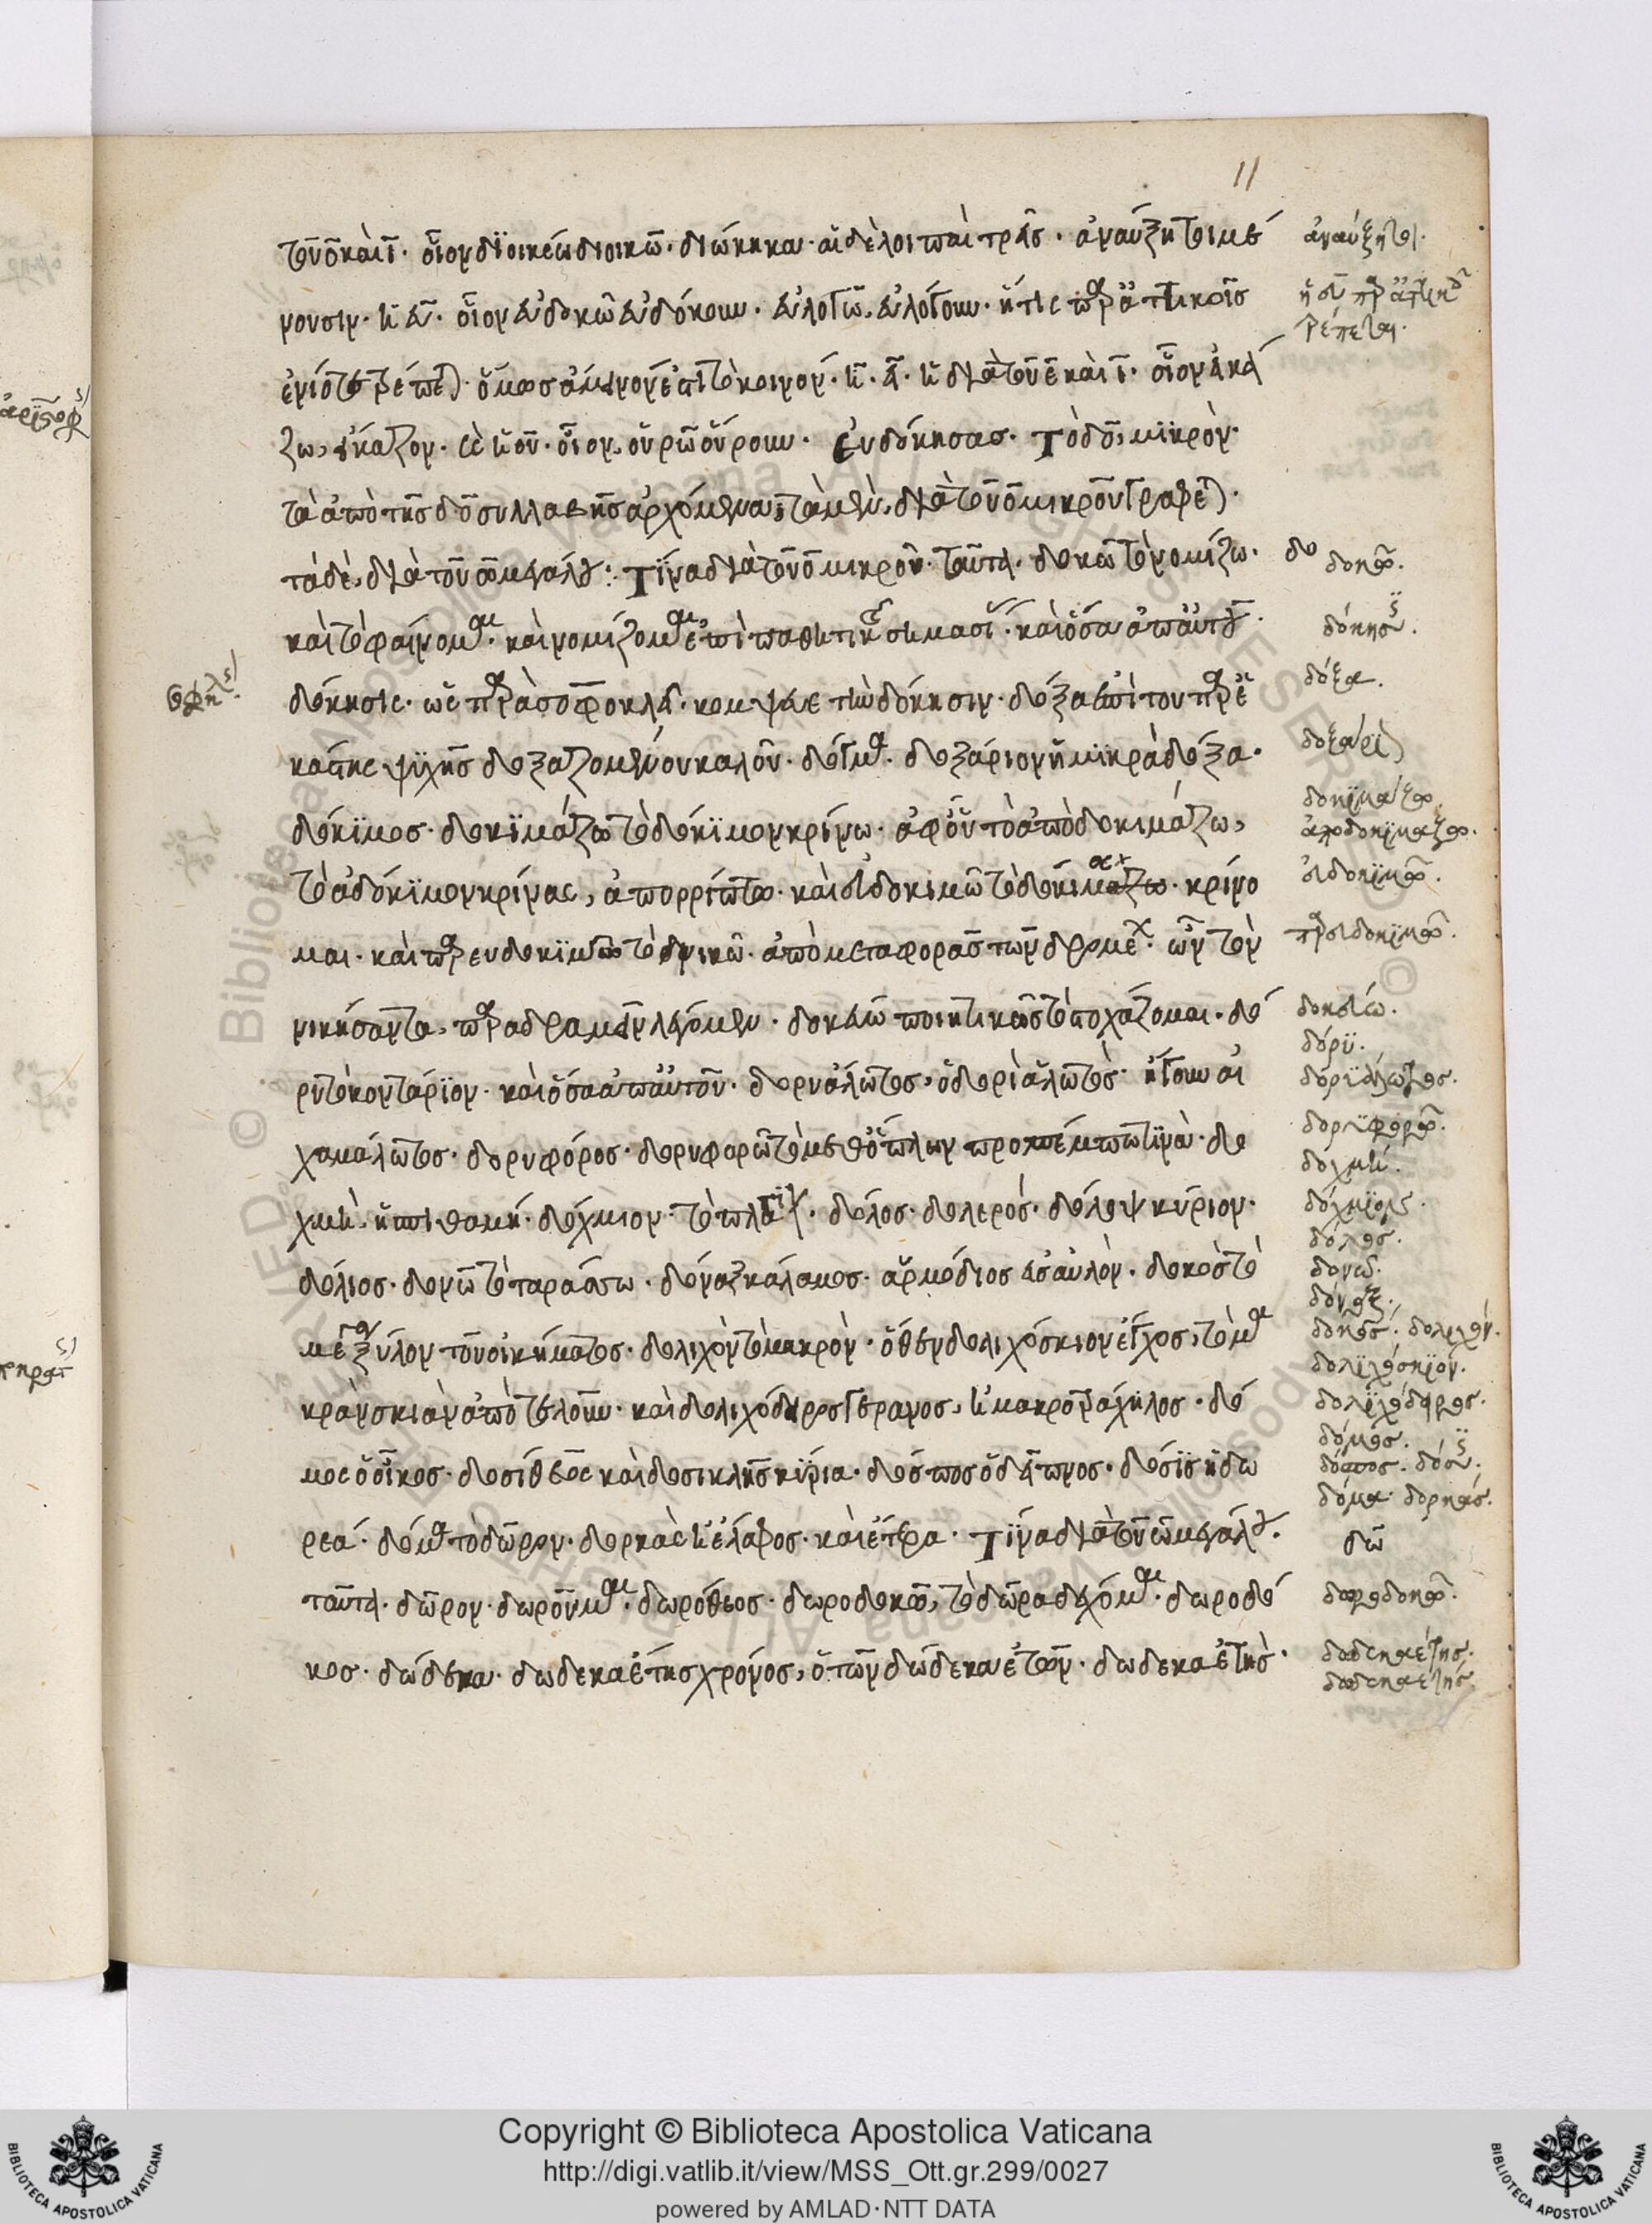 11
τοῦ ο καὶ ι. οἷον διοικέω διοικῶ. διώκηκα. αἱ δὲ λοιπαὶ τρεῖς. ἀναύξητοι μέ
νουσιν. ἡ ευ. οἷον εὐδοκῶ εὐδόκουν. εὐλογῶ, εὐλόγουν. ἥτις παρὰ ἀττικοῖς
ἐνίοτε τρέπεται. ὅμως ἄμεινον ἐπὶ τὸ κοινόν. ἡ. ει. ἡ διὰ τοῦ ε καὶ ι. οἷον εἰκά
ζω, εἴκαζον. καὶ ἡ ου. οἷον, οὐρῶ οὔρουν. εὐδόκησας. Τὸ δο, μικρὸν.
τὰ ἀπὸ τῆς δο συλλαβῆς ἀρχόμενα, τὰ μὲν, διὰ τοῦ ο μικροῦ γράφεται.
τὰ δὲ, διὰ τοῦ ω μεγάλου: Τίνα διὰ τοῦ ο μικροῦ. ταῦτα. δοκῶ τὸ νομίζω.
καὶ τὸ φαίνομαι. καὶ νομίζομαι ἐπὶ παθητικῆς σημασίας. καὶ ὅσα ἀπ' αὐτοῦ.
δόκησις. ὡς παρὰ σοφοκλεῖ. κομψῶς τὴν δόκησιν. δόξα ἐπὶ του παρ' ἑ
κάστης ψυχῆς δοξαζομένου καλοῦ. δόγμα. δοξάριον ἡ μικρὰ δόξα.
δόκιμος. δοκιμάζω τὸ δόκιμον κρίνω. ἀφ' οὗ τὸ ἀποδοκιμάζω,
τὸ ἀδόκιμον κρίνας, ἀπορρίπτω. καὶ εὐδοκιμῶ τὸ δόκιμος κρίνο
μαι. καὶ παρευδοκιμῶ τὸ νικῶ. ἀπὸ μεταφορᾶς τῶν δρομέων. ὧν τὸν
νικήσαντα, παραδραμεῖν λέγομεν. δοκεύω ποιητικῶς τὸ στοχάζομαι. δό
ρυ τὸ κοντάριον. καὶ ὅσα ἀπ' αὐτοῦ. δορυάλωτος, ὁ δοριάλωτος. ἤγουν αἰ
χμάλωτος. δορυφόρος. δορυφορῶ τὸ μεθ' ὅπλων προπέμπω τινὰ. δο
χμὴ. ἡ σπιθαμή. δόχμιον. τὸ πλάγιον. δόλος. δολερός. δόλοψ κύριον.
δόλιος. δονῶ τὸ ταράσσω. δόναξ κάλαμος. ἁρμόδιος εἰς αὐλόν. δοκὸς τὸ
μέγα ξύλον τοῦ οἰκήματος. δολιχὸν τὸ μακρὸν. ὅθεν δολιχόσκιον ἔγχος, τὸ μα
κρὰν σκιὰν ἀποτελοῦν. καὶ δολιχόδειρος γέρανος, ἡ μακροτράχηλος. δό
μος ὁ οἶκος. δοσίθεος καὶ δοσικλῆς κύρια. δόρπος ὁ δεῖπνος. δόσις ἡ δω
ρεά. δόμα τὸ δῶρον. δορκὰς ἡ ἔλαφος. καὶ ἕτερα. Τίνα διὰ τοῦ ω μεγάλου.
ταῦτα. δῶρον. δωροῦμαι. δωρόθεος. δωροδοκῶ, τὸ δῶρα δέχομαι. δωροδό
κος. δώδεκα. δωδεκαέτης χρόνος, ὁ τῶν δώδεκα ἐτῶν. δωδεκαετὴς.
ἀναύξητοι.
τρέπεται.
δο
δοκῶ.
δόκησις.
δόξα.
δοξάριον
δοκιμάζω
ἀποδοκιμάζω.
εὐδοκιμῶ.
παρευδοκιμῶ.
δοκεύω.
δόρυ.
δοριάλωτος.
δορυφορῶ.
δοχμή.
δόχμιος.
δόλος.
δονῶ.
δόναξ.
δοκὸς. δολιχόν.
δολιχόσκιον.
δολιχόδειρος.
δόμος.
δόρπος. δόσις.
δόμα. δορκάς.
δω
δωροδοκῶ.
δωδεκαέτης.
δωδεκαετής.
Copyright © Biblioteca Apostolica Vaticana
http://digi.vatlib.it/view/MSS_Ott.gr.299/0027
powered by AMLAD·NTT DATA
BIBLIOTECA APOSTOLICA VATICANA
BIBLIOTECA APOSTOLICA VATICANA